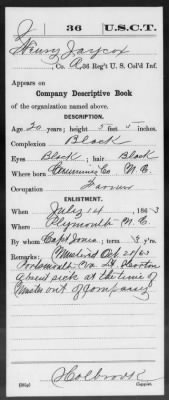 J | 36 | U.S.C.T.
Henry Jaycox
Co. A, 36 Reg't U. S. Col'd Inf.
Appears on
Company Descriptive Book
of the organization named above.
DESCRIPTION.
Age 20 years; height 5 feet inches
Complexion Black
Eyes Black; hair Black
Where born Co N. C.
Occupation Farmer
ENLISTMENT.
When July 1st, 1863
Where Plymouth N.C.
By whom Capt Jones; term 3 y'rs.
Remarks: Mustered Oct 28/63
Portsmouth Va Lt
absent sick at the time of
muster out of company
Holbrook
Copyist.